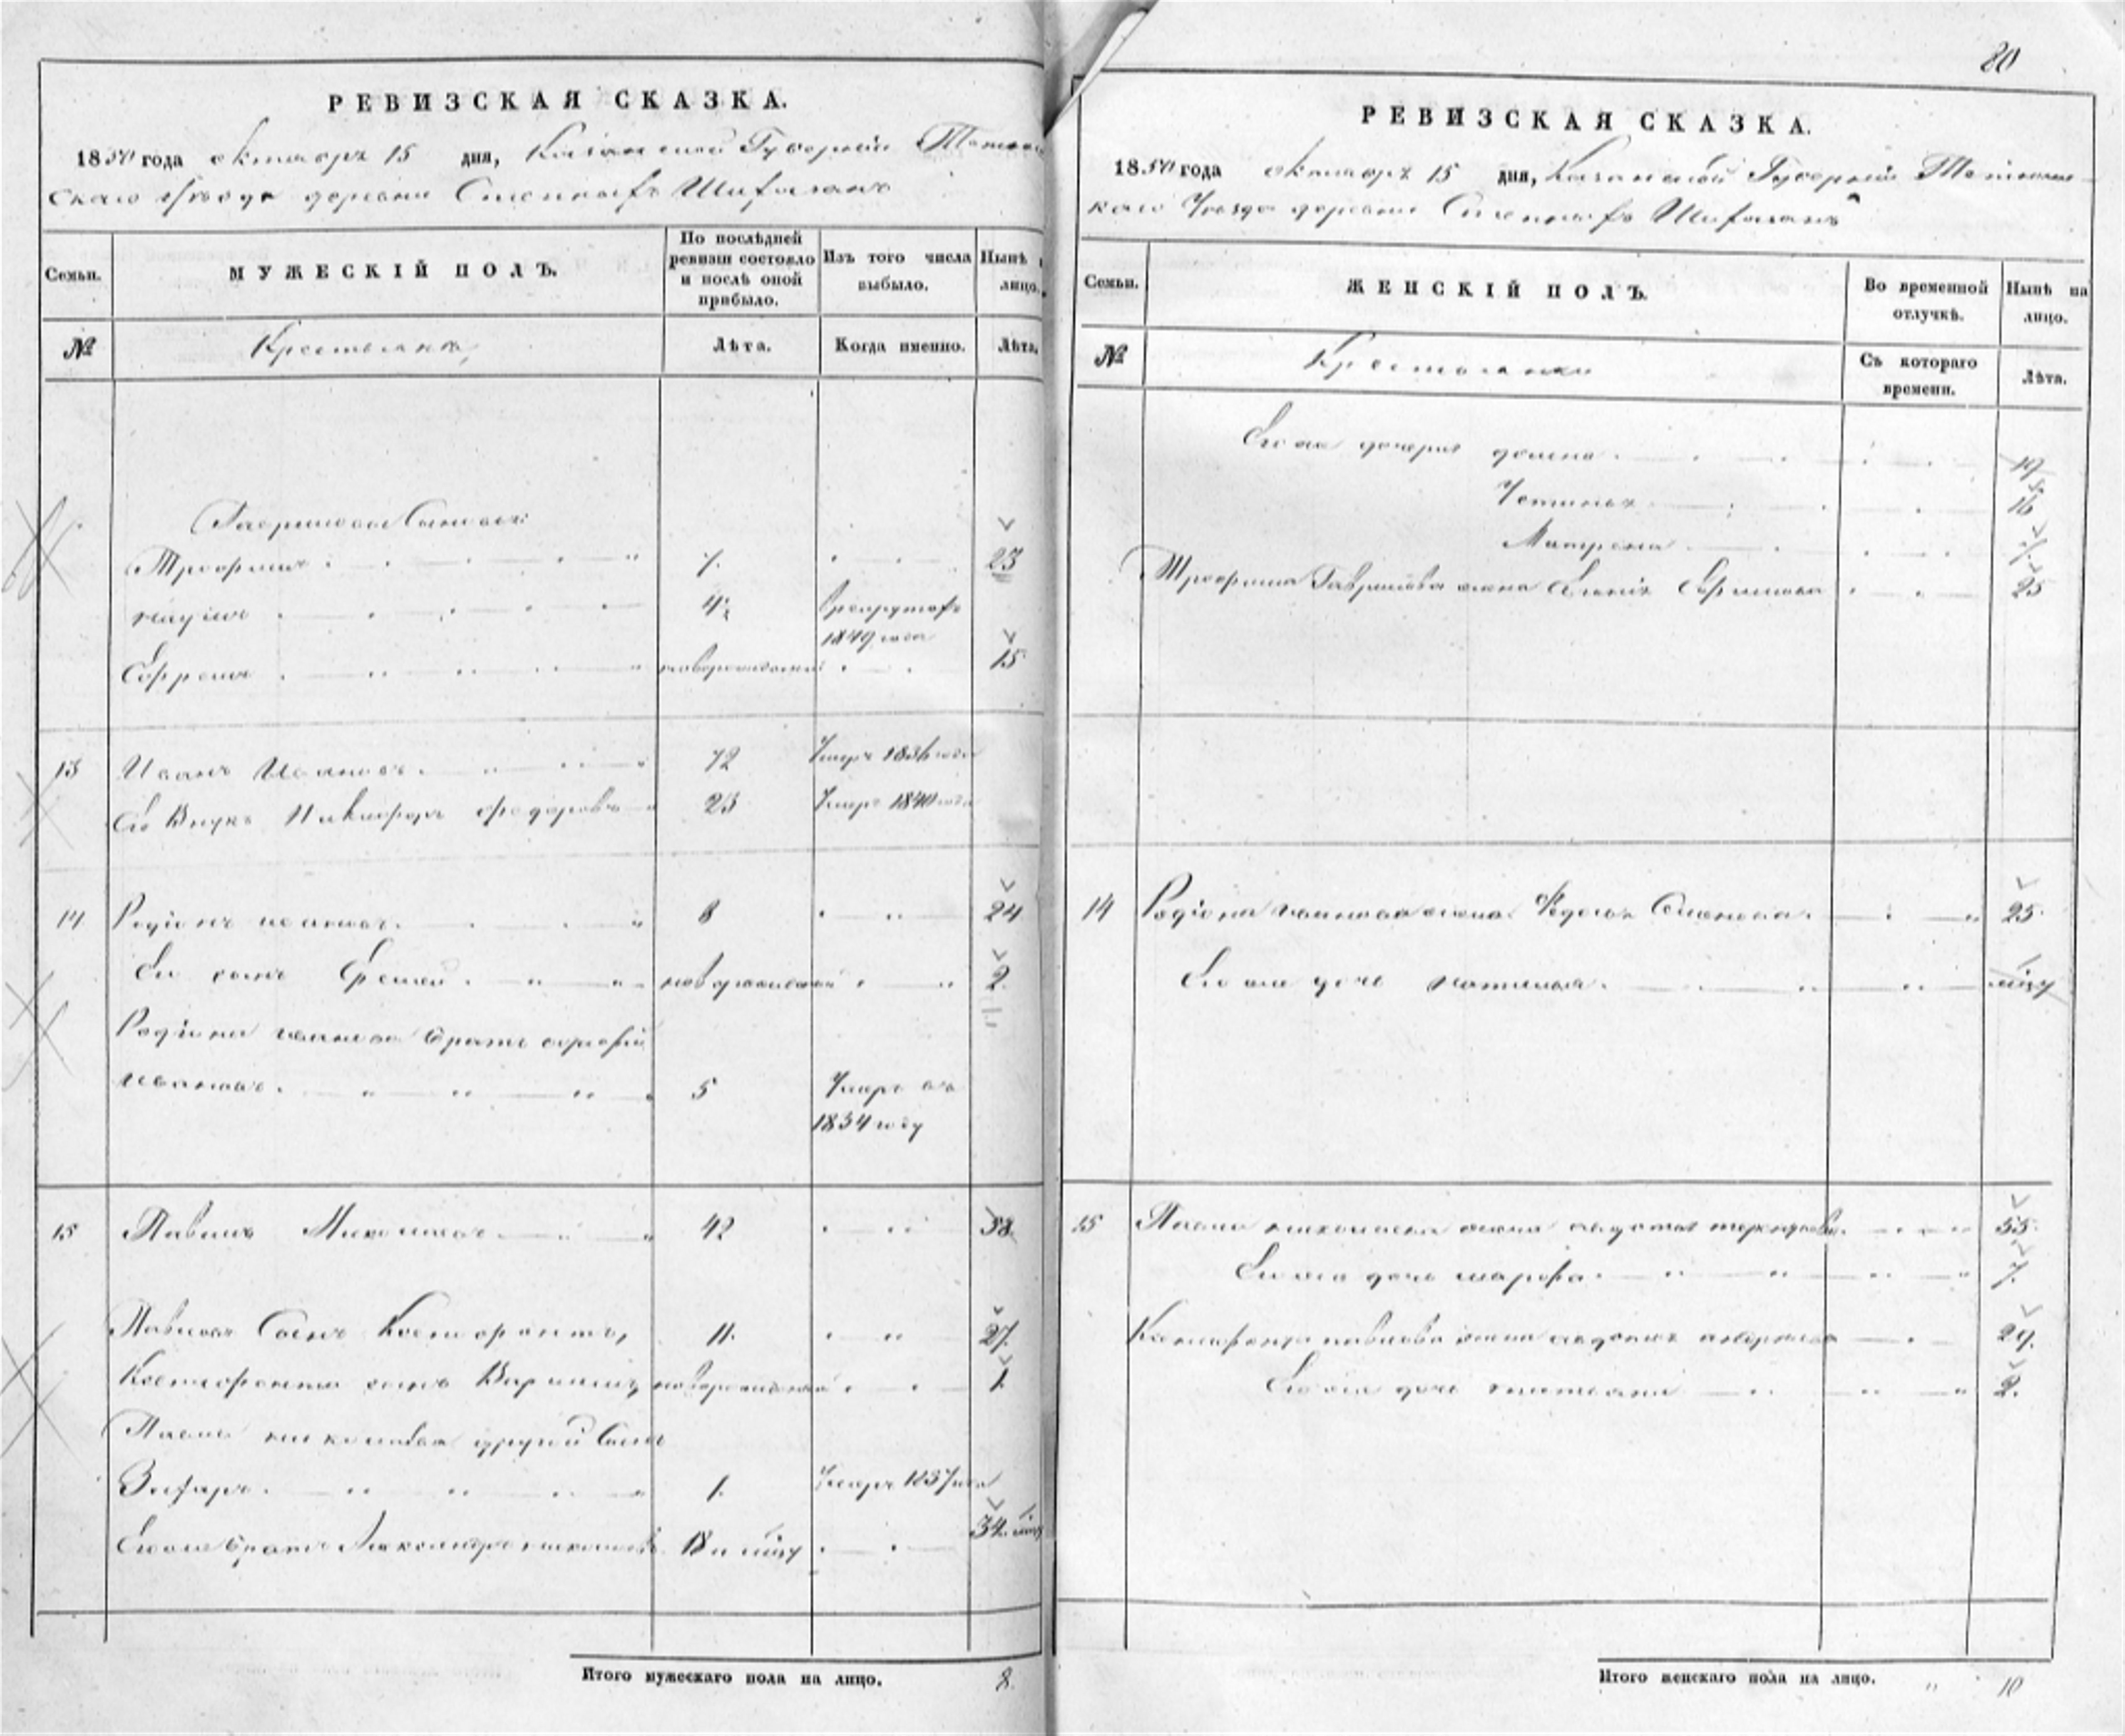 РЕВИЗСКАЯ СКАЗКА.
1850 года октября 15 дня, Казанской Губерніи
скаго уѣзда деревни Степныхъ Шифаланъ
Семьи.
МУЖЕСКІЙ ПОЛЪ.
По послѣдней ревизіи состояло и послѣ оной прибыло.
Изъ того числа выбыло.
Нынѣ
лицо.
№
Крестьяне
Лѣта.
Когда именно.
Лѣта.
Гавриловы Сыновья
Трофимъ 7. 23
4½ в рекруты
1849 года
Ефремъ новорожденный 15
13 Иванъ Ивановъ 72 Умеръ 1836 года
Его Внукъ Никифоръ Федоровъ 23 Умеръ 1840 года
14 Родіонъ Ивановъ 8 24
Его сынъ новорожденный 2
Родіона Иванова братъ
Ивановъ 5 Умеръ въ
1834 году
15 Павелъ Николаевъ 42 58.
Павловъ Сынъ Ксенофонтъ, 11. 27.
Ксенофонта сынъ новорожденный 1
Павла Николаева другой Сынъ
Захаръ 1. Умеръ 1837 года
братъ Александръ Николаевъ 18 34
Итого мужескаго пола на лицо. 8.
80
РЕВИЗСКАЯ СКАЗКА.
1850 года октября 15 дня, Казанской Губерніи
скаго Уѣзда деревни Степныхъ Шифаланъ
Семьи.
ЖЕНСКІЙ ПОЛЪ.
Во временной отлучкѣ.
Нынѣ на лицо.
№
Крестьянки
Съ котораго времени.
Лѣта.
Его же дочери 19
Устинья 16
Матрена
Трофима Гаврилова жена Ефимова 25
14 Родіона Иванова жена Федосья Семенова 25
Его же дочь Наталья
15 Павла Николаева жена Авдотья 55
Его же дочь Марфа 7.
Ксенофонта Павлова жена Авдотья 29.
Его же дочь Татьяна 2.
Итого женскаго пола на лицо. 10